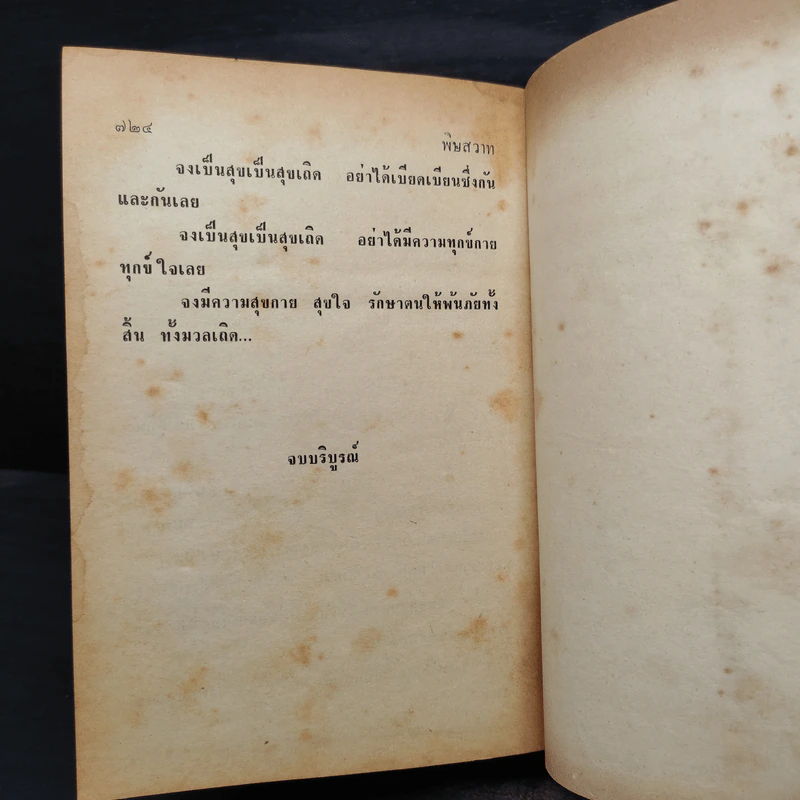 ๗๒๔
พิษสวาท
จงเป็นสุขเป็นสุขเถิด อย่าได้เบียดเบียนซึ่งกัน
และกันเลย
จงเป็นสุขเป็นสุขเถิด อย่าได้มีความทุกข์กาย
ทุกข์ ใจเลย
จงมีความสุขกาย สุขใจ รักษาตนให้พ้นภัยทั้ง
สิ้น ทั้งมวลเถิด...
จบบริบูรณ์